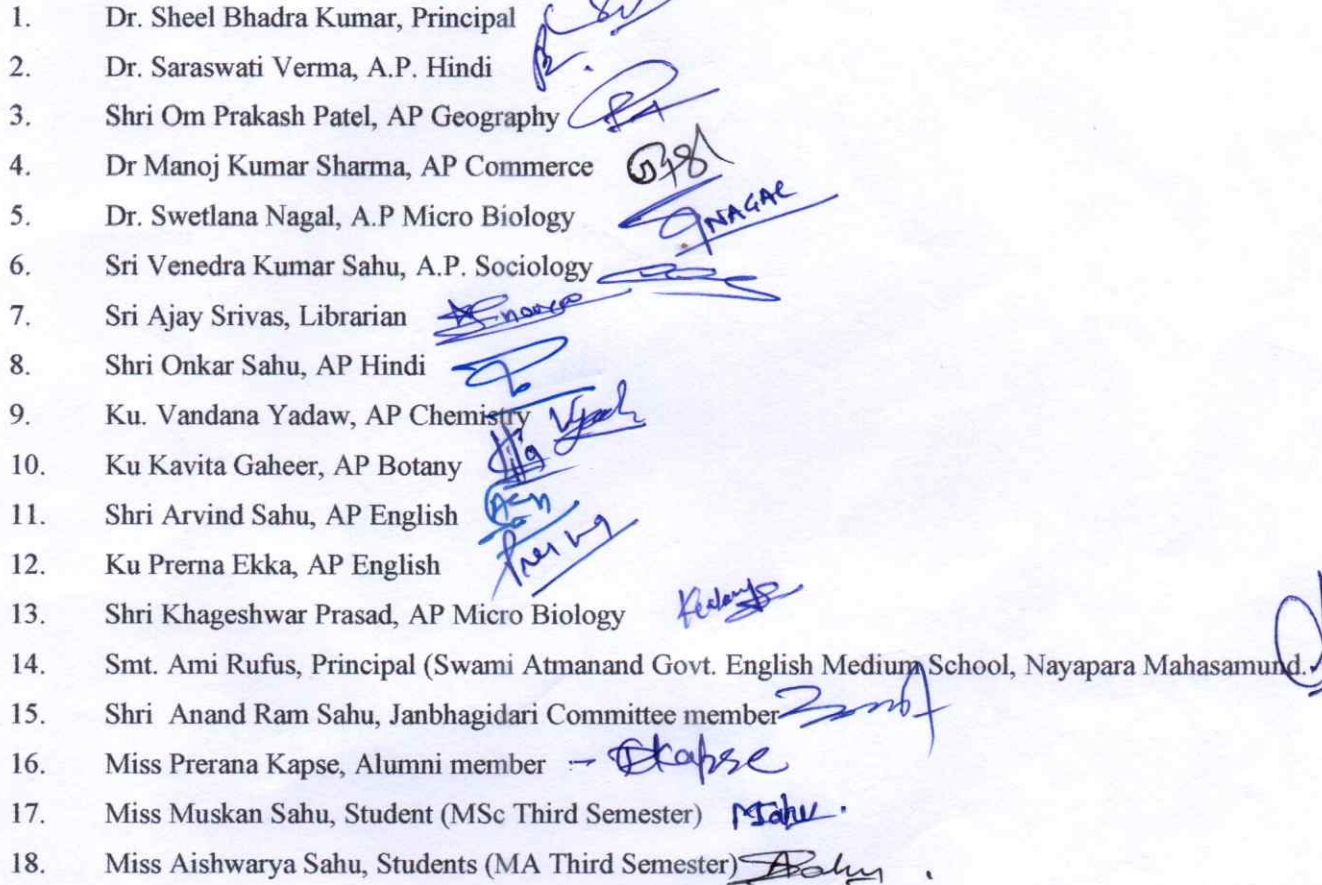 1. Dr. Sheel Bhadra Kumar, Principal
2. Dr. Saraswati Verma, A.P. Hindi
3. Shri Om Prakash Patel, AP Geography
4. Dr Manoj Kumar Sharma, AP Commerce
5. Dr. Swetlana Nagal, A.P Micro Biology NAGAL
6. Sri Venedra Kumar Sahu, A.P. Sociology
7. Sri Ajay Srivas, Librarian
8. Shri Onkar Sahu, AP Hindi
9. Ku. Vandana Yadaw, AP Chemistry
10. Ku Kavita Gaheer, AP Botany
11. Shri Arvind Sahu, AP English
12. Ku Prerna Ekka, AP English
13. Shri Khageshwar Prasad, AP Micro Biology
14. Smt. Ami Rufus, Principal (Swami Atmanand Govt. English Medium School, Nayapara Mahasamund.
15. Shri Anand Ram Sahu, Janbhagidari Committee member
16. Miss Prerana Kapse, Alumni member - Kapse
17. Miss Muskan Sahu, Student (MSc Third Semester) MSahu.
18. Miss Aishwarya Sahu, Students (MA Third Semester) ASahu.